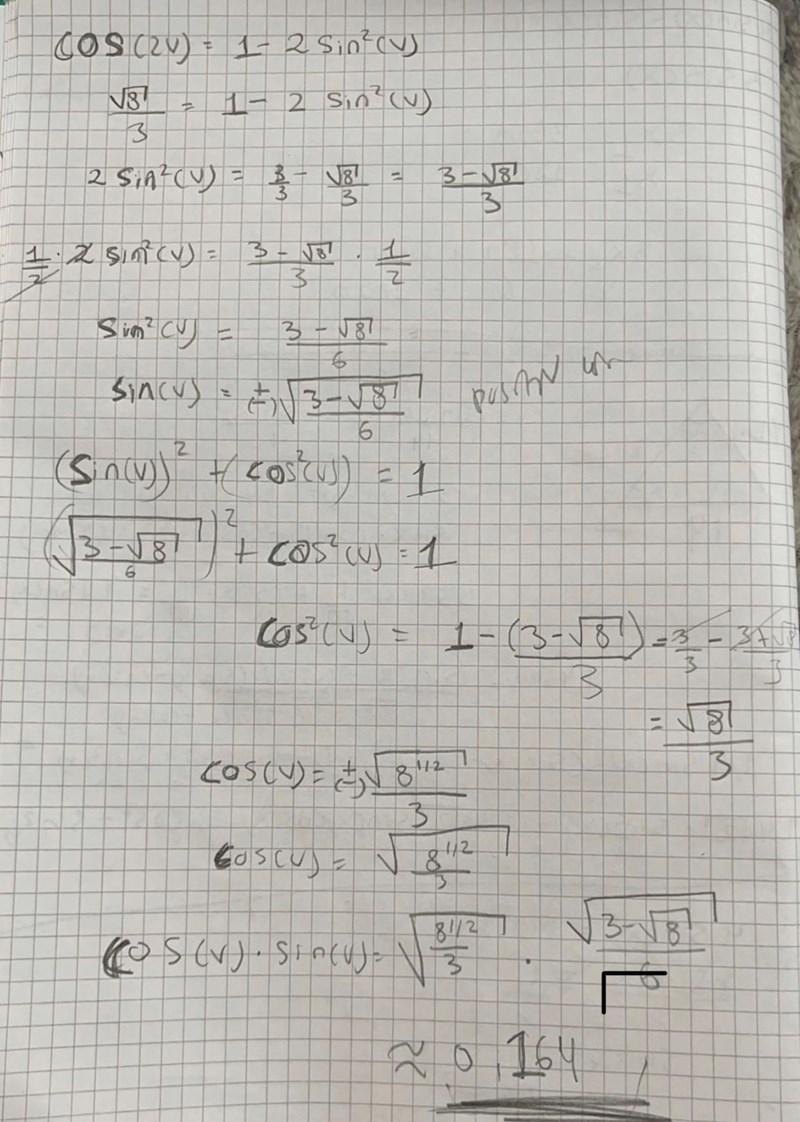 cos(2v) = 1 - 2 sin²(v)
√8/3 = 1 - 2 sin²(v)
2 sin²(v) = 3/3 - √8/3 = (3-√8)/3
1/2 · 2 sin²(v) = (3-√8)/3 · 1/2
sin²(v) = (3-√8)/6
sin(v) = ±√((3-√8)/6)
(sin(v))² + (cos²(v)) = 1
(√((3-√8)/6))² + cos²(v) = 1
cos²(v) = 1 - (3-√8)/3 = 3/3 - (3+√8)/3
= √8/3
cos(v) = (±)√(8^1/2)/3
cos(v) = √(8^1/2/3)
cos(v) · sin(v) = √(8^1/2/3) · √(3-√8)/6
≈ 0,164